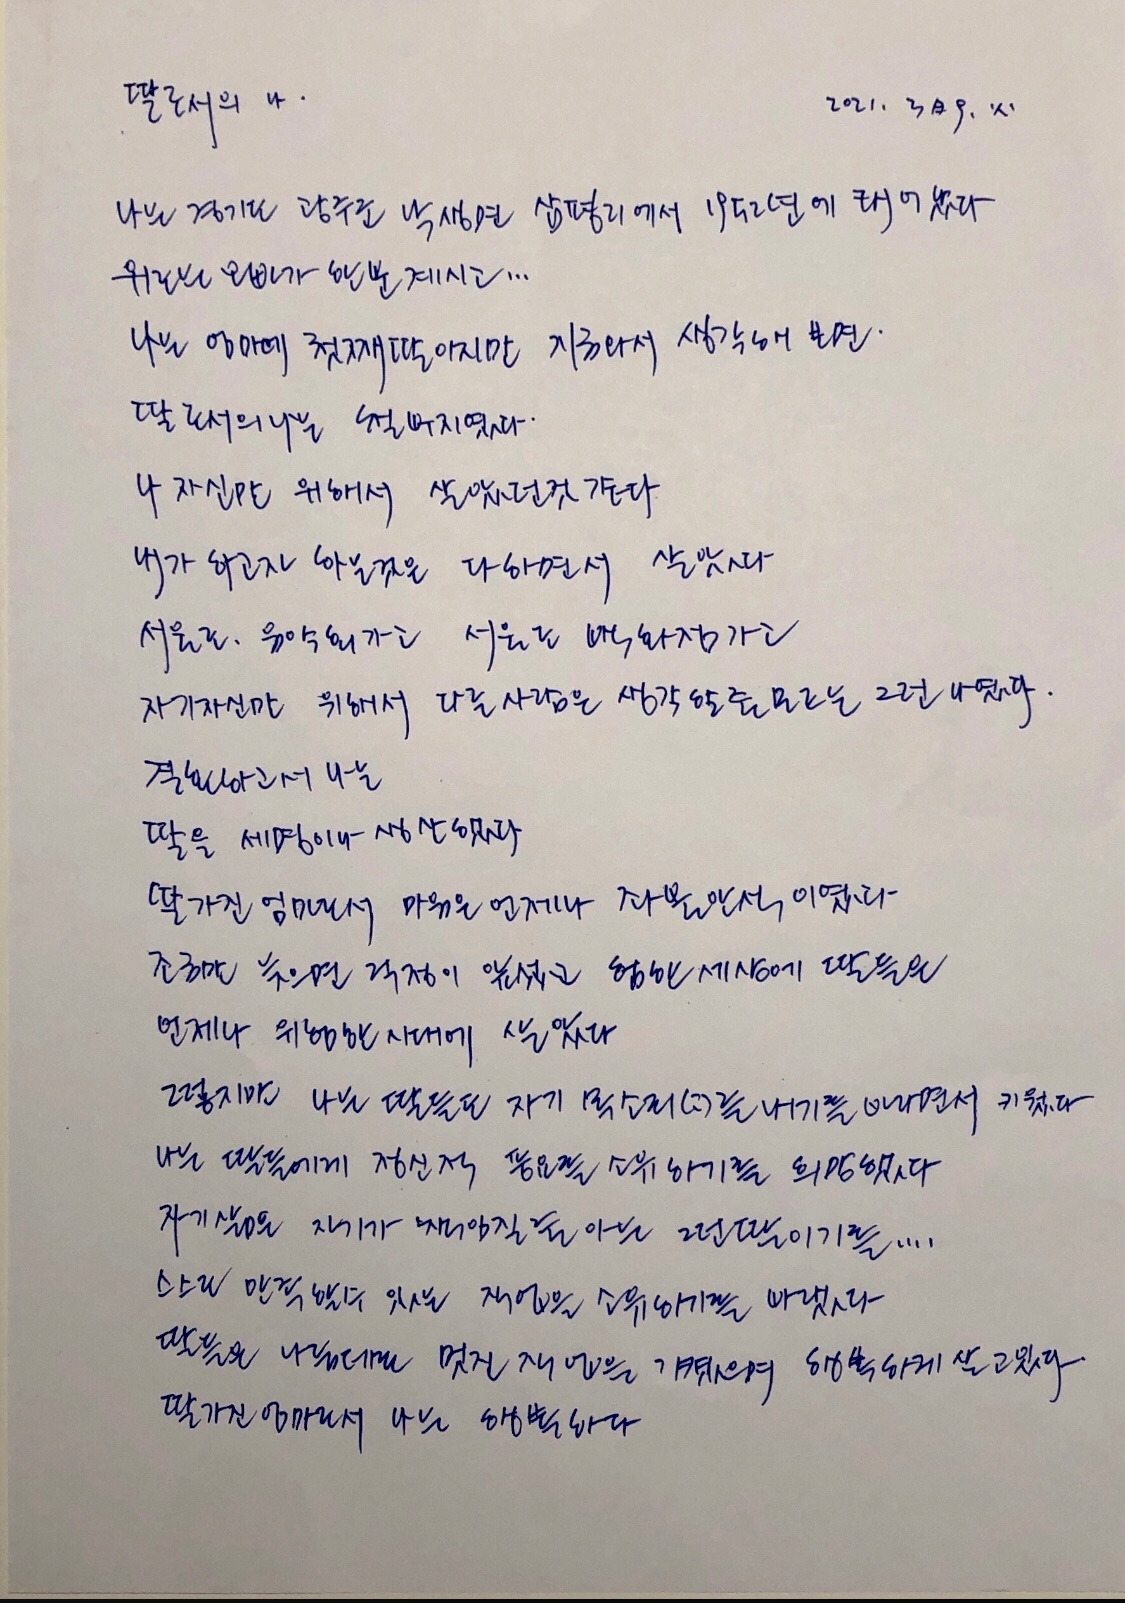 딸로서의 나.
2021. 3月 9.
나는 경기도 광주군 낙생면 삼평리에서 1952년에 태어났다
위로는 오빠가 한분계시고...
나는 엄마에 첫째딸이지만 지금와서 생각해 보면.
딸로서의나는 철부지였다.
나 자신만 위해서 살았던것 같다
내가 하고자 하는것은 다하면서 살았다
서울로. 음악회가고 서울로 백화점가고
자기자신만 위해서 다른사람은 생각할줄모르는 그런 나였다.
결혼하고서 나는
딸을 세명이나 생산했다
딸가진 엄마로서 마음은 언제나 좌불안석 이였다
조금만 늦으면 걱정이 앞섰고 험한 세상에 딸들은
언제나 위험한 시대에 살았다
그렇지만 나는 딸들도 자기 목소리(力)를 내기를 바라면서 키웠다
나는 딸들에게 정신적 풍요를 소유하기를 희망했다
자기삶은 자기가 책임질줄아는 그런딸이기를....
스스로 만족할수 있는 직업을 소유하기를 바랬다
딸들은 나름대로 멋진 직업을 가졌으며 행복하게 살고있다.
딸가진엄마로서 나는 행복하다